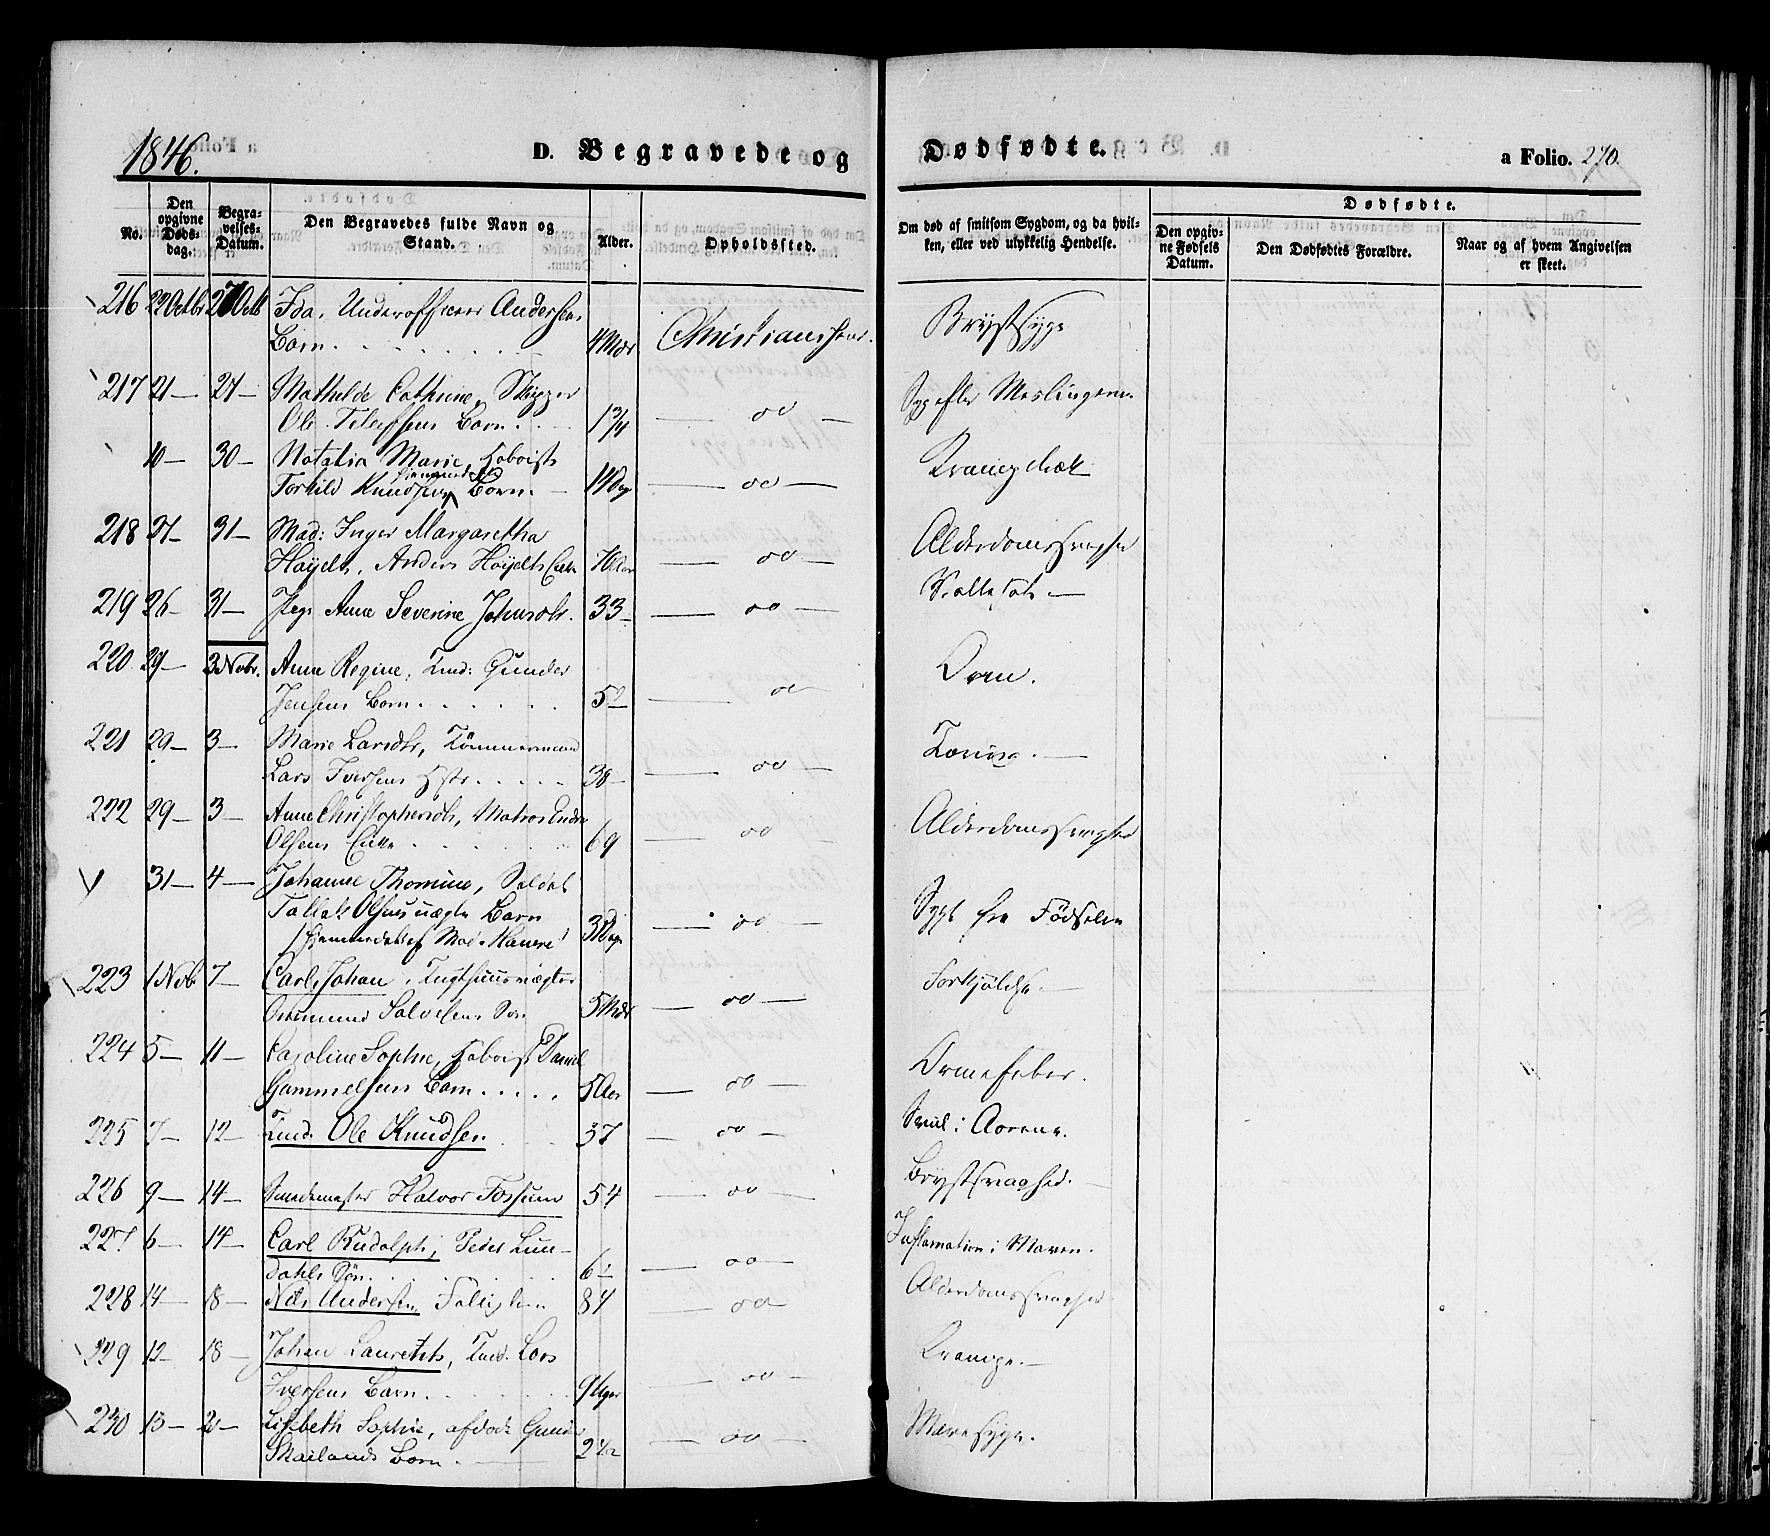 1846.
D. Begravede og Dødfødte.
a Folio. 270.
No.
Den opgivne Døds-dag.
Begra-velses-Datum.
Den Begravedes fulde Navn og Stand.
Alder.
Opholdssted.
Om død af smitsom Sygdom, og da hvil-ken, eller ved ulykkelig Hendelse.
Dødfødte.
Den opgiv-ne Fødsels Datum.
Den Dødfødtes Forældre.
Naar og af hvem Angivelsen er skeet.
216 22 Octbr 27 Octb Ida, Underofficeer Andersens
Barn. 4 Mdr Christianssand. Brystsyge
217 21 — 27 — Mathilde Cathrine, Skipper
Ole Tellefsens Barn. 1 3/4 — do — Syg efter Meslingerne
10 — 30 — Natalia Marie, Hoboist
Torkild Knudsens hjemmedøbt Barn. — 14 Dag — do — Krampe
218 27 — 31 — Mad: Inger Margaretha
Høyelts, Anders Høyelts Enke 70 Aar — do — Alderdomssvaghed
219 26 — 31 — Pige Anne Severine Johnsdtr. 33 — — do —
220 29 — 3 Novbr. Anne Regine, Tmd: Gunder
Jensens Barn. 5 — do Orm.
221 29 — 3 — Marie Larsdtr, Tømmermand
Lars Iversens Hstr. 38 — — do — Tæring. —
222 29 — 3 — Anne Christophersdtr, Matros Endre
Olsens Enke 69 — do Alderdomssvaghed
31 — 4 — Johanne Thomine, Soldat
Tallak Olsens uægte Barn
/hjemmedøbt af Mad. 3 Dage — do — Sygt fra Fødselen
223 1 Novb 7 — Carl Johan, Tugthuusvægter
Omund Salvesens Søn 5 Mdr — do — Forkjølelse. —
224 5 — 11 — Caroline Sophie, Hoboist Daniel
Gammelsens Barn. 5 Aar — do — Ormefeber.
225 7 — 12 — Tmd. Ole Knudsen 37 — do — i Aarene.
226 9 — 14 — Smedemester Halvor Fossum 54 — do — Brystsvaghed.
227 6 — 14 — Carl Rudolph, Peder Lun-
dahls Søn. 6 — do — Inflamation i Maven.
228 14 — 18 — Nils Andersen Fattiglem 84 — do Alderdomssvaghed
229 12 — 18 — Johan Lauretits, Tmd. Lars
Iversens Barn. 9 Uger — do — Krampe. —
230 15 — 21 — Lisebeth Sophie, afdøde Gunder
Mailands Barn. — 2 — do — Mavesyge.